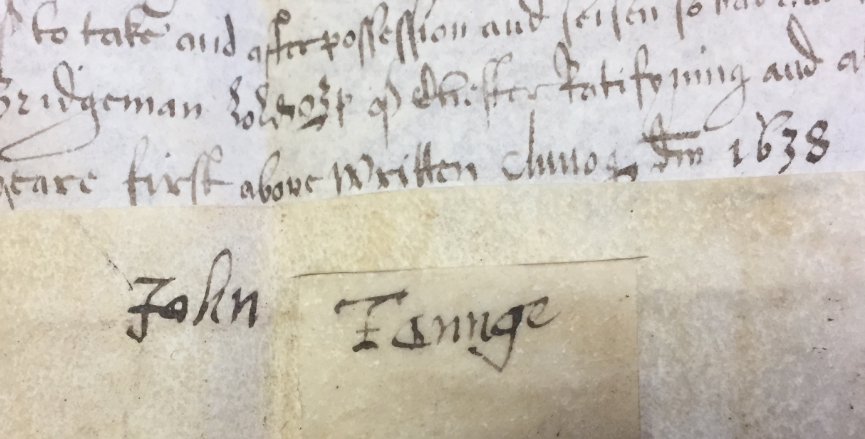 to take and after possession and seisen so had and
Bridgeman of Chester Ratifyning and
yeare first above Written Anno dm 1638
John Tannge